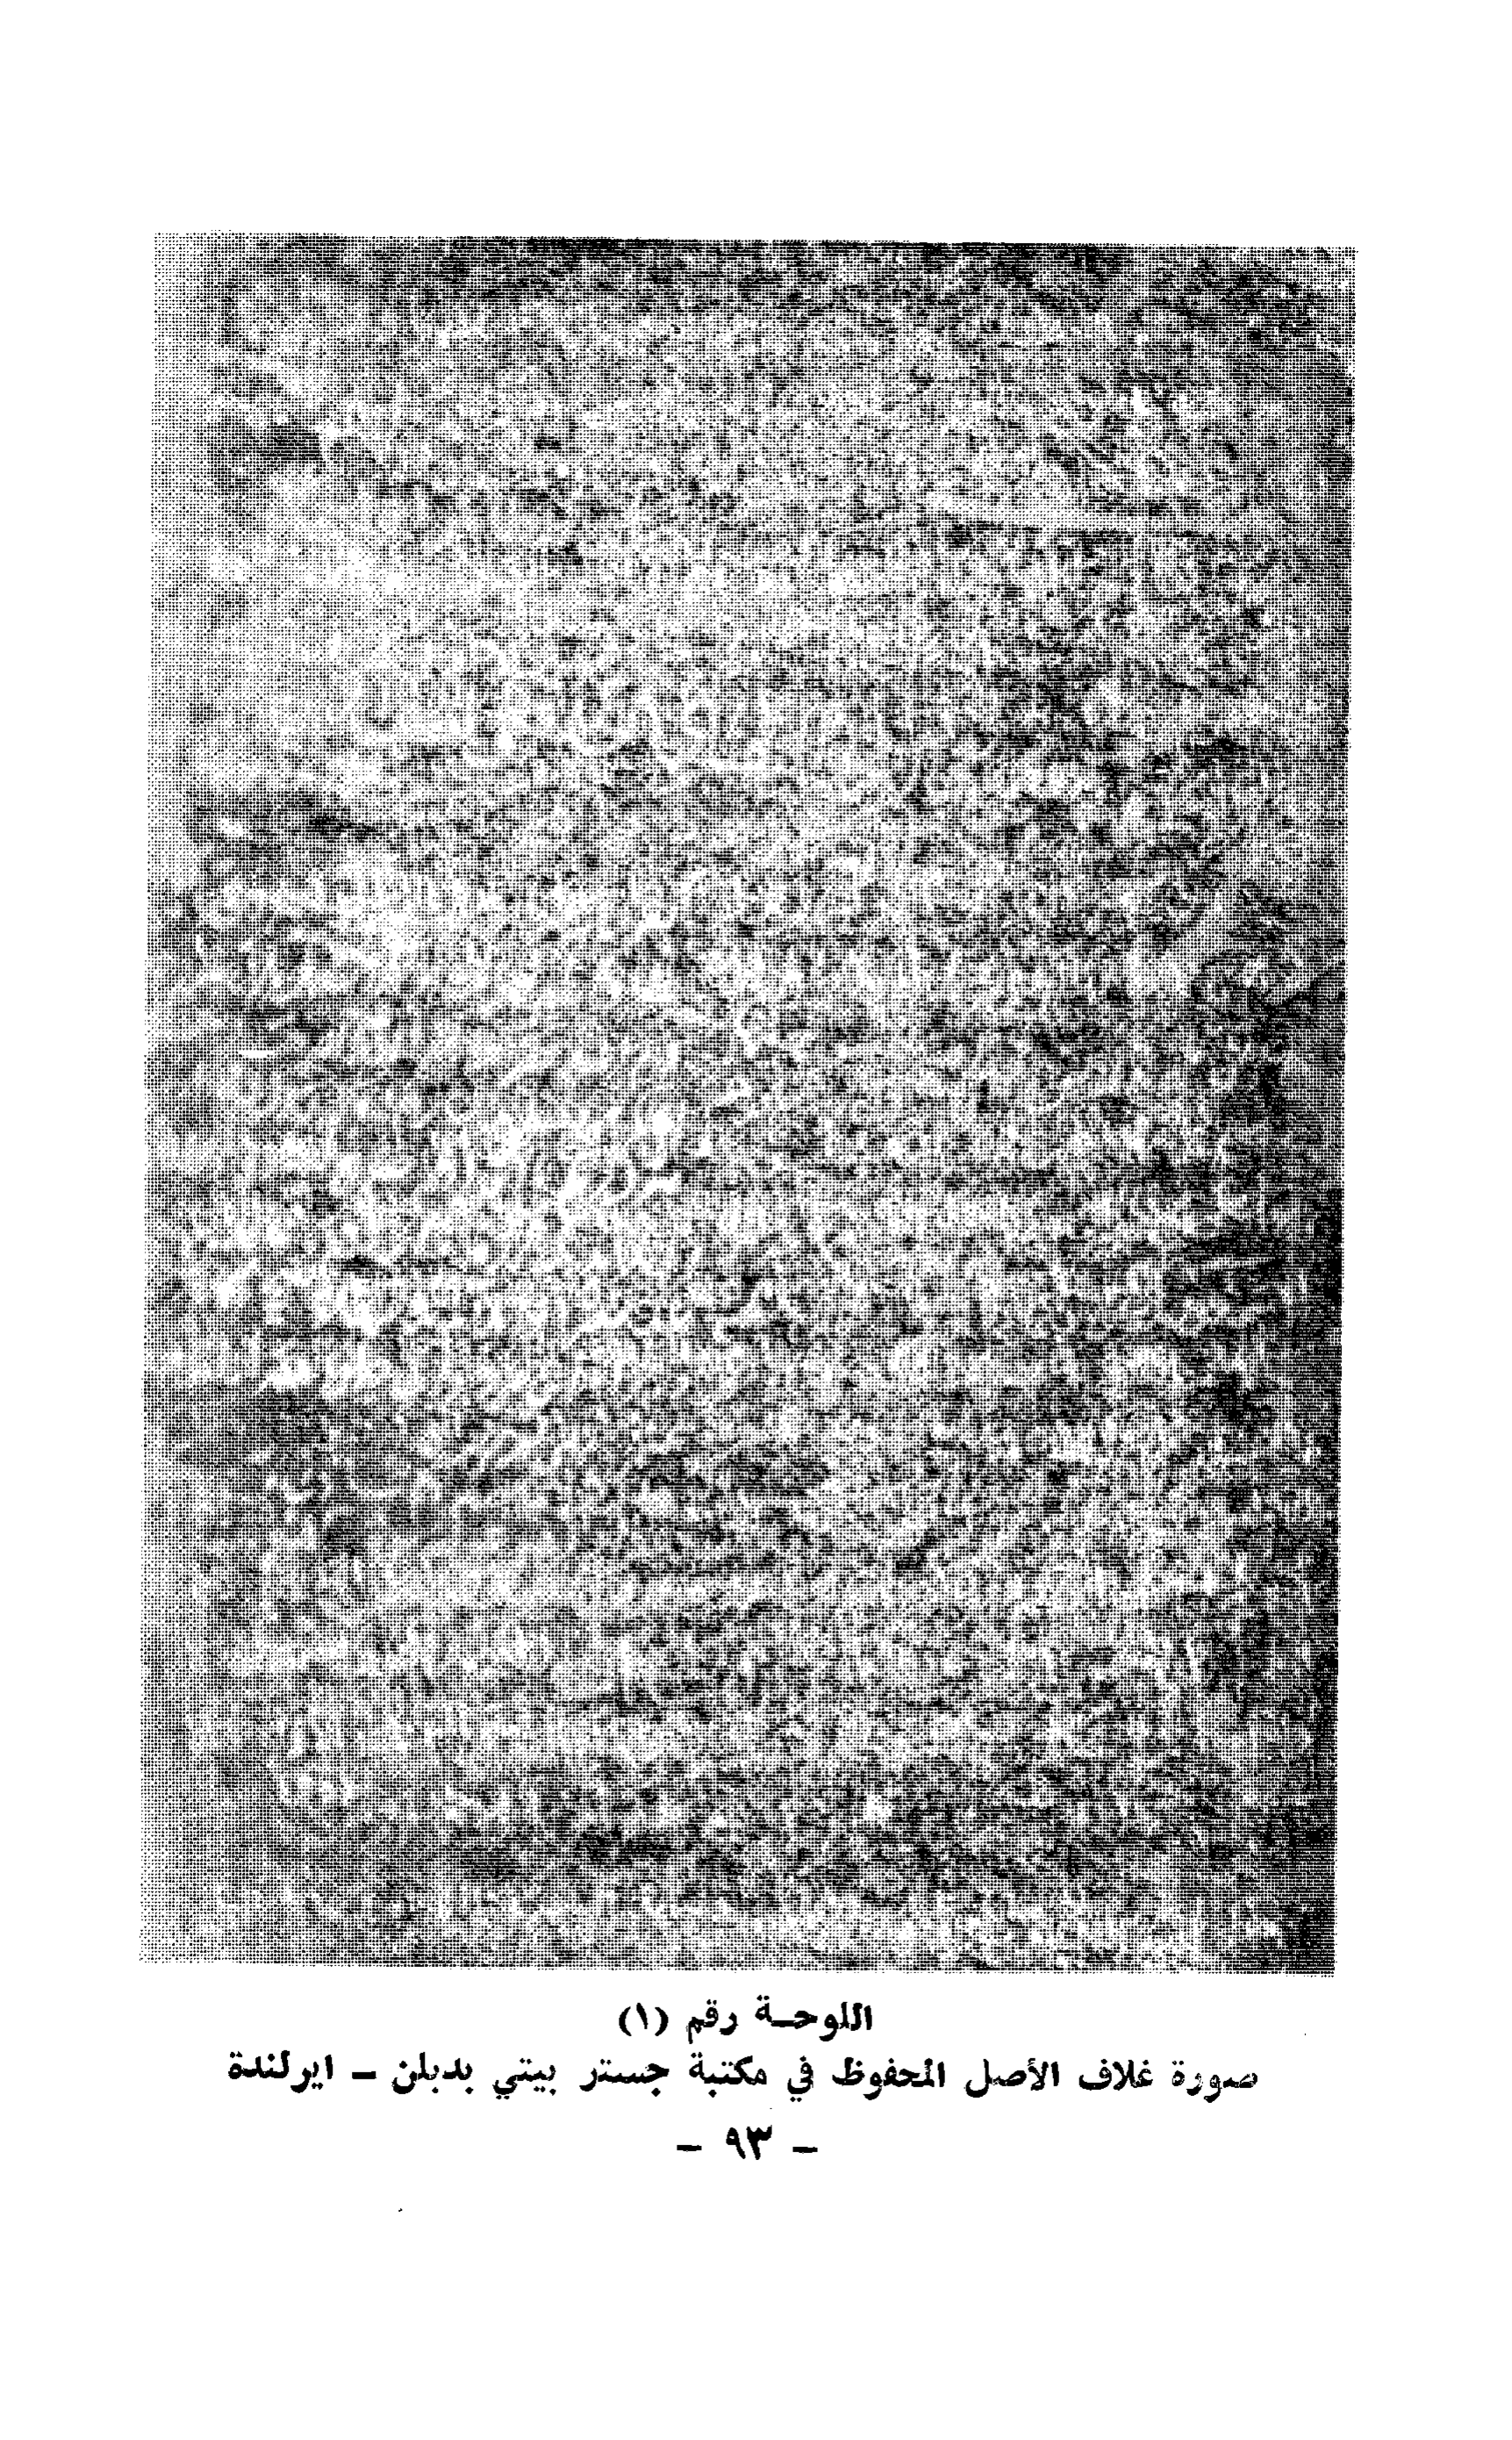 اللوحـة رقم (١)
صورة غلاف الأصل المحفوظ في مكتبة جستر بيتي بدبلن – ايرلندة
– ٩٣ –